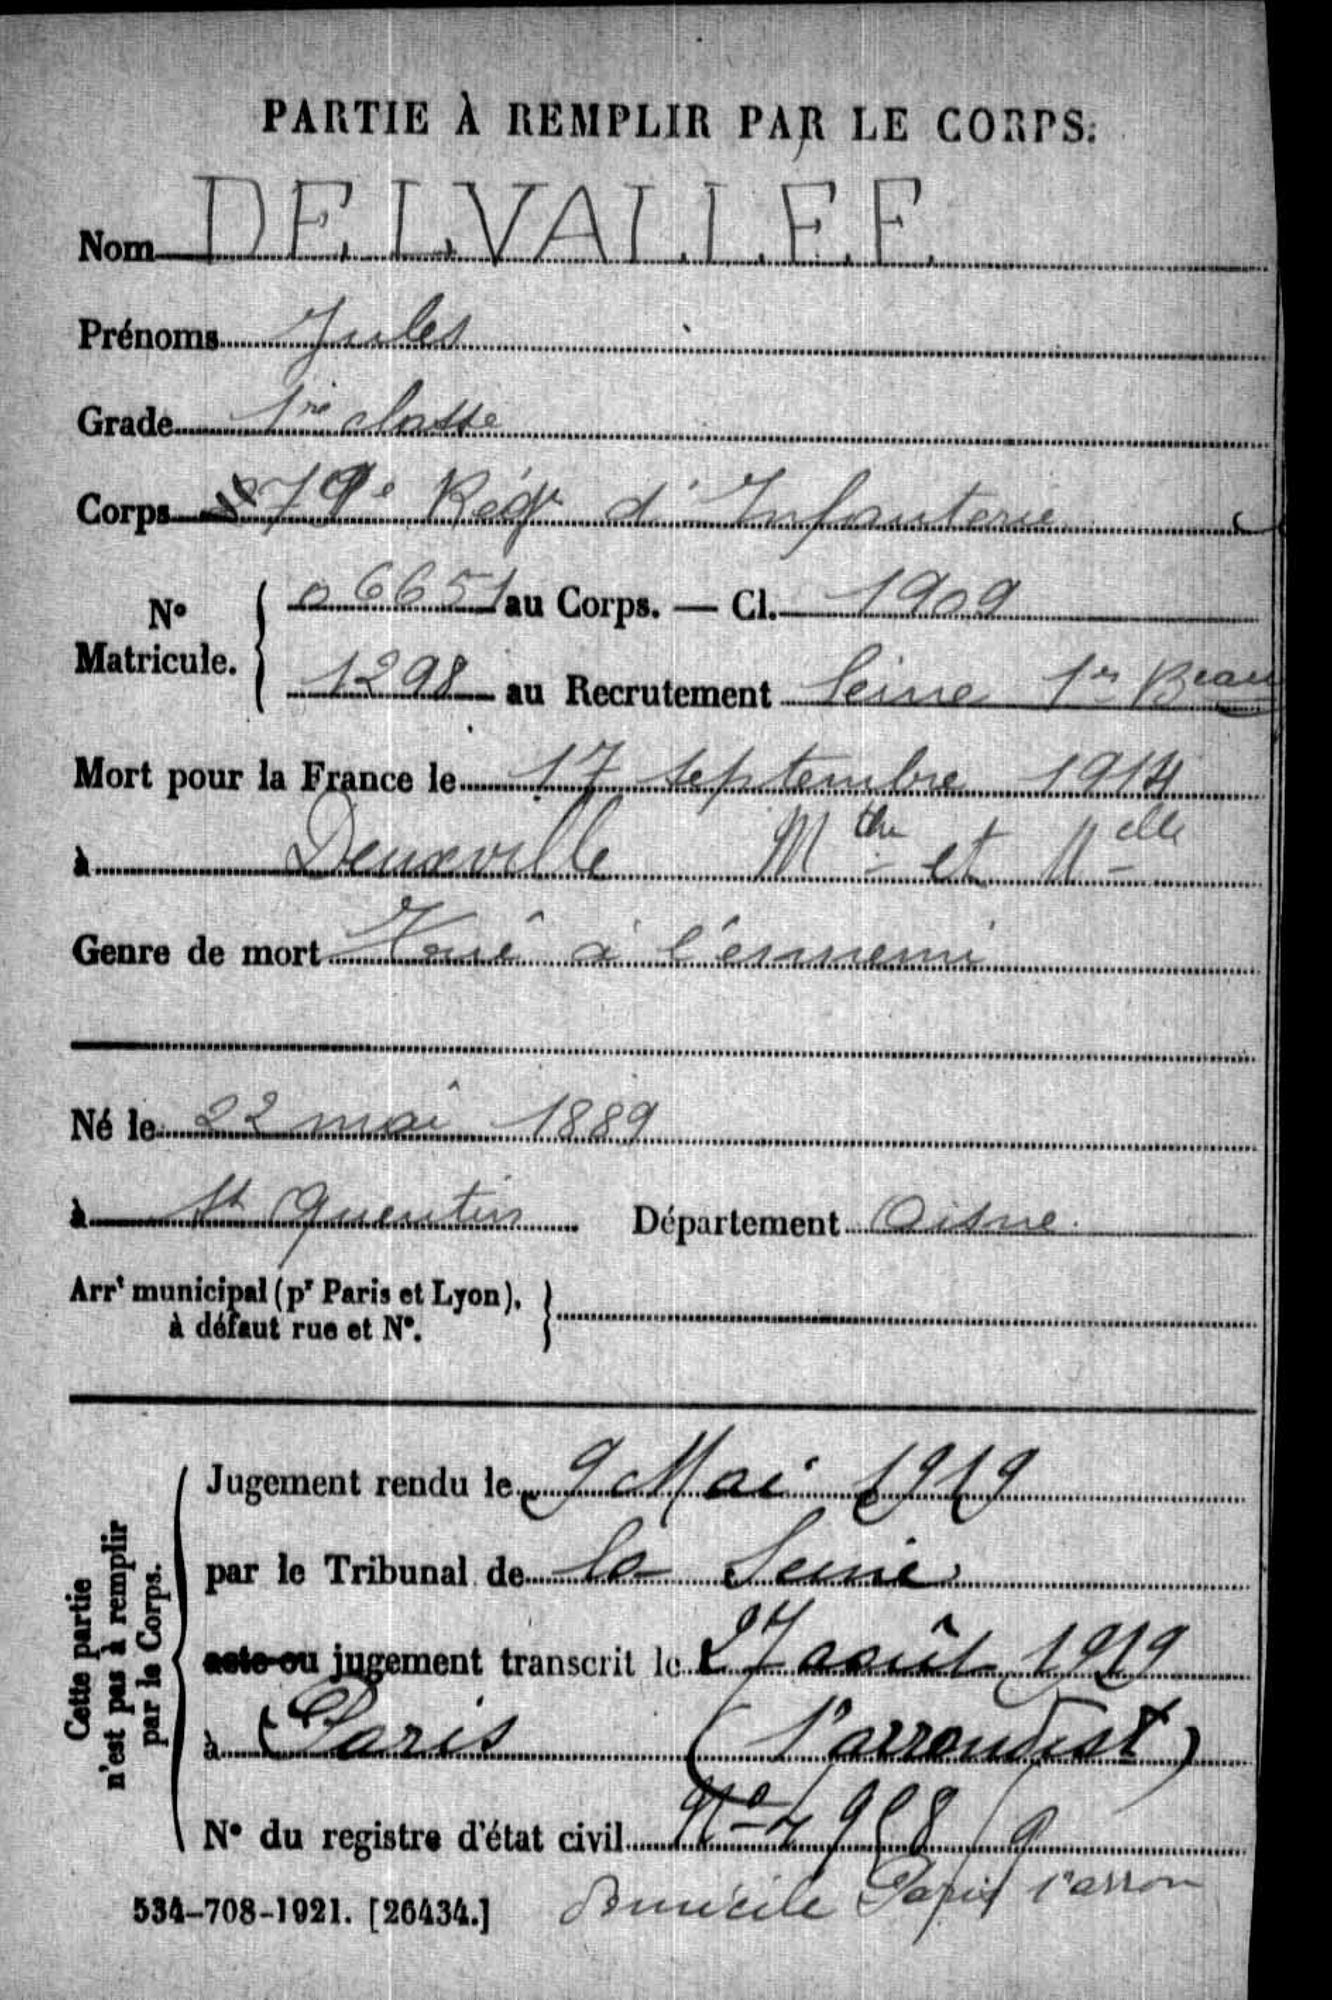 PARTIE À REMPLIR PAR LE CORPS.
Nom DELVALLEE
Prénoms Jules
Grade 1re classe
Corps 79e Régt d'Infanterie
N° Matricule. 06651 au Corps. — Cl. 1909
1298 au Recrutement Seine 1er Beau
Mort pour la France le 17 septembre 1914
à Deuxville Mthe et Melle
Genre de mort Tué à l'ennemi
Né le 22 mai 1889
à St Quentin Département Aisne.
Arrt municipal (pr Paris et Lyon),
à défaut rue et N°.
Cette partie
n'est pas à remplir
par le Corps.
Jugement rendu le 9 Mai 1919
par le Tribunal de la Seine
acte ou jugement transcrit le 27 août 1919
à Paris (1er arrondist)
N° du registre d'état civil
534-708-1921. [26434.] domicile Paris 1er arron